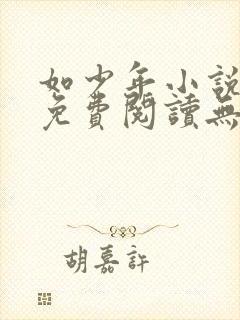 如少年小說
免費閱讀無
胡嘉許